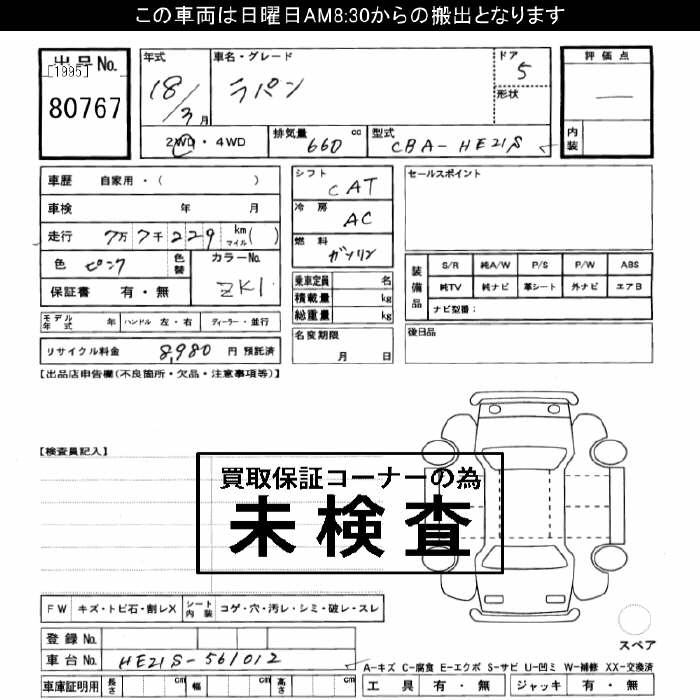 この車両は日曜日AM8:30からの搬出となります
出品No.
[1995]
80767
年式
18/3月
車名・グレード
ラパン
ドア
5
形状
評価点
—
内装
2WD・4WD
排気量 660 cc
型式 CBA-HE21S
車歴 自家用・( )
車検 年 月
走行 7万7千229 km マイル( )
色 ピンク 色替
カラーNo. ZK1
保証書 有・無
モデル年式 年 ハンドル 左・右 ディーラー・並行
リサイクル料金 8,980 円 預託済
シフト CAT
冷房 AC
燃料 ガソリン
乗車定員 名
積載量 kg
総重量 kg
名変期限
月 日
セールスポイント
装備品
S/R 純A/W P/S P/W ABS
純TV 純ナビ 革シート 外ナビ エアB
ナビ型番:
後日品
【出品店申告欄(不良箇所・欠品・注意事項等)】
【検査員記入】
買取保証コーナーの為
未検査
FW キズ・トビ石・割レX シート内装 コゲ・穴・汚レ・シミ・破レ・スレ
登録No.
車台No. HE21S-561012
車庫証明用 長さ cm 幅 cm 高さ cm
スペア
A-キズ C-腐食 E-エクボ S-サビ U-凹ミ W-補修 XX-交換済
工具 有・無 ジャッキ 有・無